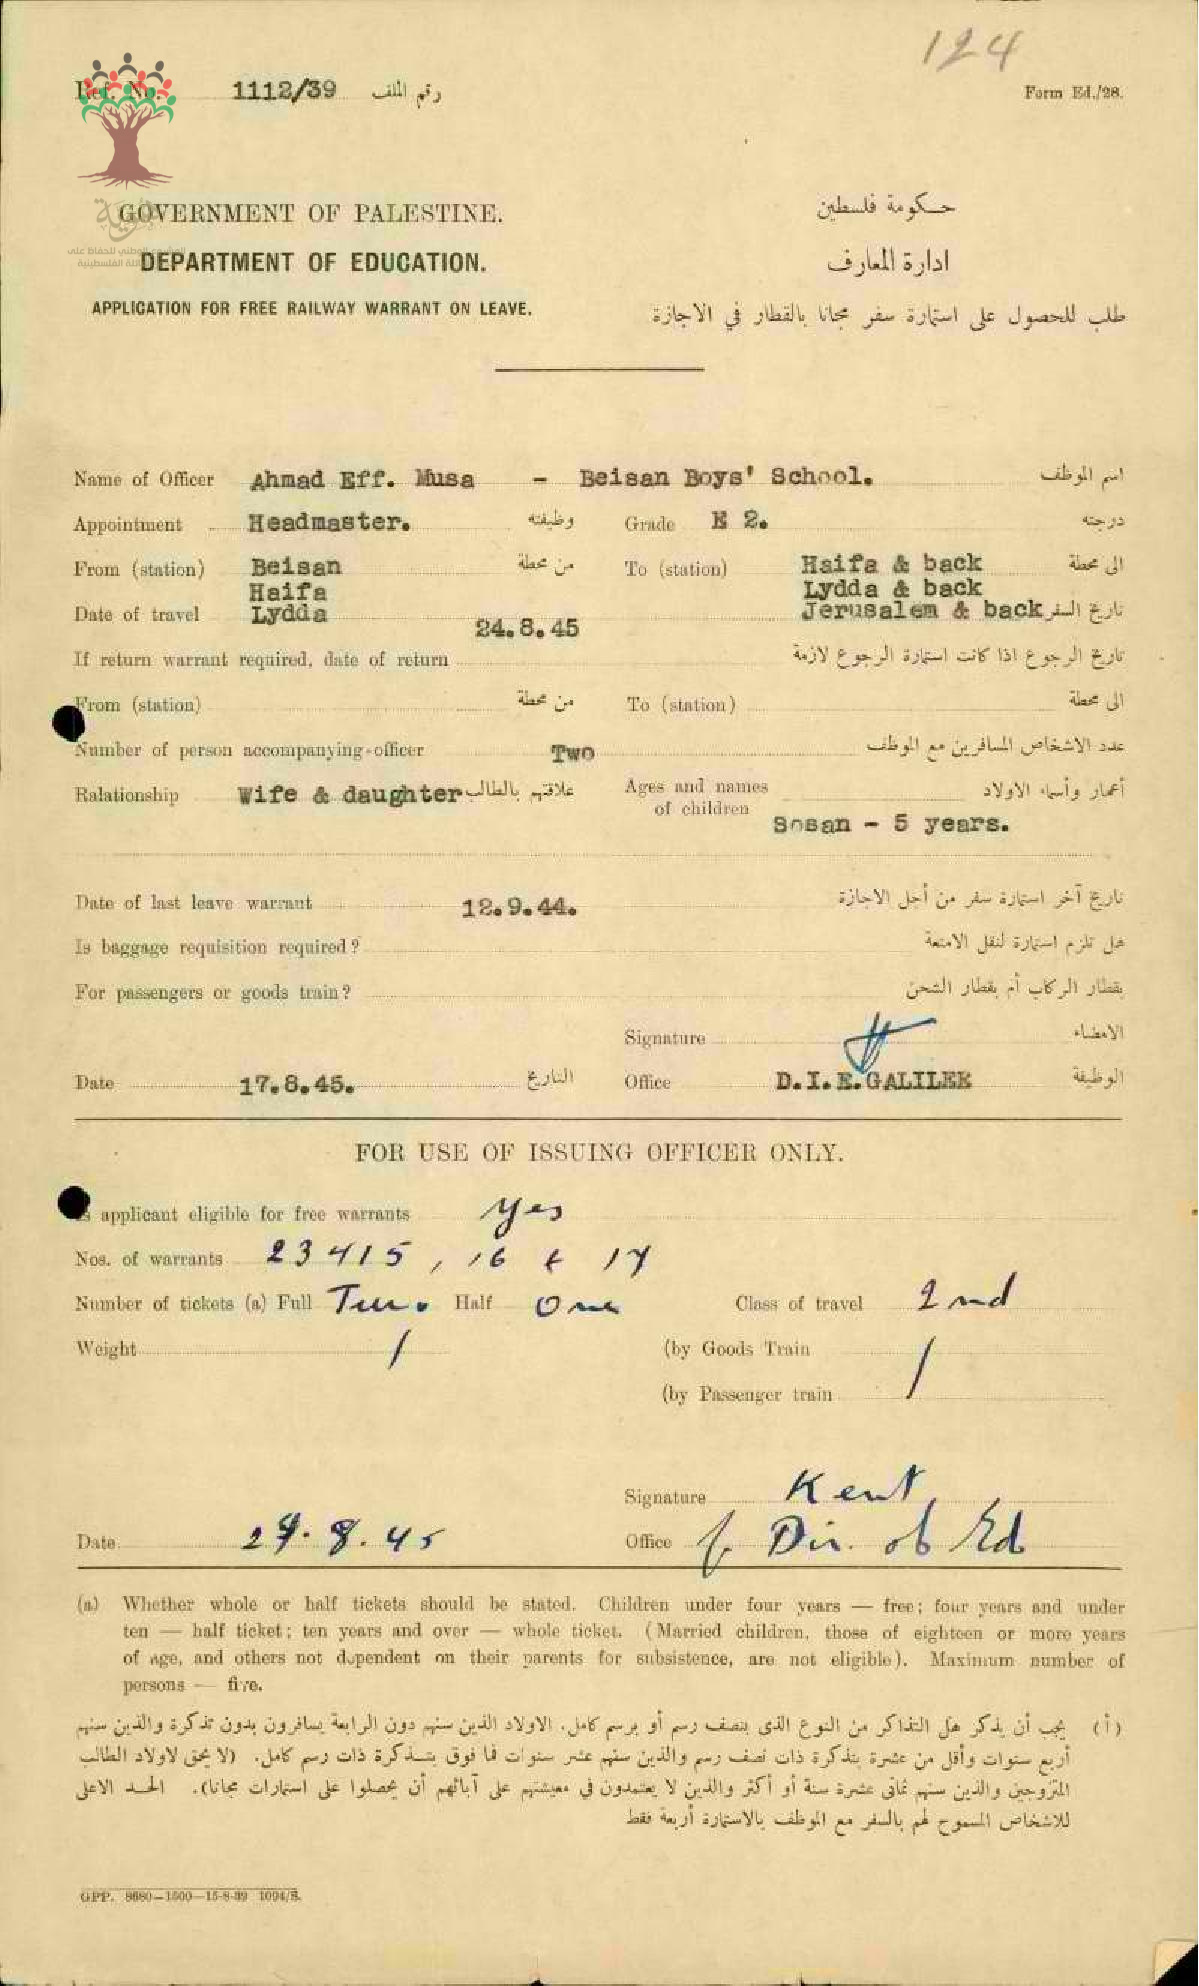 124
Ref. No. 1112/39 رقم الملف
Form Ed./28.
هوية
المشروع الوطني للحفاظ على
GOVERNMENT OF PALESTINE. حكومة فلسطين
DEPARTMENT OF EDUCATION. ادارة المعارف
APPLICATION FOR FREE RAILWAY WARRANT ON LEAVE. طلب للحصول على استمارة سفر مجانا بالقطار في الاجازة
Name of Officer Ahmad Eff. Musa - Beisan Boys' School. اسم الموظف
Appointment Headmaster. وظيفته Grade E 2. درجته
From (station) Beisan من محطة To (station) Haifa & back الى محطة
Haifa Lydda & back
Date of travel Lydda Jerusalem & back تاريخ السفر
24.8.45
If return warrant required, date of return تاريخ الرجوع اذا كانت استمارة الرجوع لازمة
From (station) من محطة To (station) الى محطة
Number of person accompanying-officer Two عدد الاشخاص المسافرين مع الموظف
Ralationship Wife & daughter علاقتهم بالطالب Ages and names of children أعمار وأسماء الاولاد
Sosan - 5 years.
Date of last leave warrant 12.9.44. تاريخ آخر استمارة سفر من أجل الاجازة
Is baggage requisition required? هل تلزم استمارة لنقل الامتعة
For passengers or goods train? بقطار الركاب أم بقطار الشحن
Signature الامضاء
Date 17.8.45. التاريخ Office D.I.E.GALILEE الوظيفة
FOR USE OF ISSUING OFFICER ONLY.
Is applicant eligible for free warrants yes
Nos. of warrants 23415, 16 & 17
Number of tickets (a) Full Two. Half One Class of travel 2nd
Weight / (by Goods Train /
(by Passenger train
Signature Kent
Date 24.8.45 Office f. Dir. of Ed
(a) Whether whole or half tickets should be stated. Children under four years — free; four years and under
ten — half ticket; ten years and over — whole ticket. (Married children, those of eighteen or more years
of age, and others not dependent on their parents for subsistence, are not eligible). Maximum number of
persons — five.
(أ) يجب أن يذكر هل التذاكر من النوع الذي بنصف رسم أو برسم كامل. الاولاد الذين سنهم دون الرابعة يسافرون بدون تذكرة والذين سنهم
أربع سنوات وأقل من عشرة بتذكرة ذات نصف رسم والذين سنهم عشر سنوات فما فوق بتذكرة ذات رسم كامل. (لا يحق لاولاد الطالب
المتزوجين والذين سنهم ثماني عشرة سنة أو أكثر والذين لا يعتمدون في معيشتهم على آبائهم أن يحصلوا على استمارات مجانا). الحد الاعلى
للاشخاص المسموح لهم بالسفر مع الموظف بالاستمارة أربعة فقط
GPP. 8680—1500—15-8-39 1094/S.